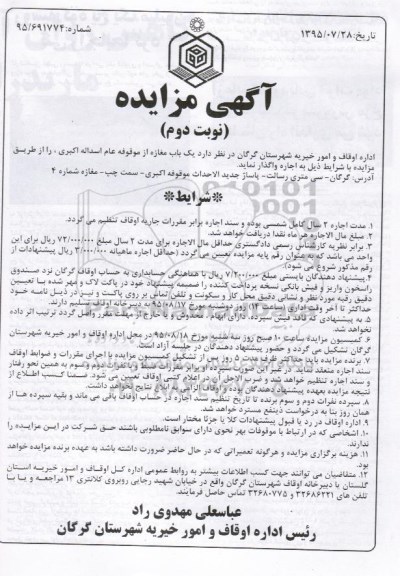 تاریخ:۱۳۹۵/۰۷/۲۸
شماره:۹۵/۶۹۱۷۷۴
آگهی مزایده
(نوبت دوم)
اداره اوقاف و امور خیریه شهرستان گرگان در نظر دارد یک باب مغازه از موقوفه عام اسداله اکبری ، را از طریق
مزایده با شرایط ذیل به اجاره واگذار نماید.
آدرس: گرگان- سی متری رسالت- پاساژ جدید الاحداث موقوفه اکبری- سمت چپ- مغازه شماره ۴
*شرایط*
۱. مدت اجاره ۲ سال کامل شمسی بوده و سند اجاره برابر مقررات جاریه اوقاف تنظیم می گردد.
۲. مبلغ مال الاجاره هر ماه نقدا دریافت خواهد شد.
۳. برابر نظریه کارشناس رسمی دادگستری حداقل مال الاجاره برای مدت ۲ سال مبلغ ۷۲/۰۰۰/۰۰۰ ریال برای این
واحد می باشد که به عنوان رقم پایه مزایده تعیین می گردد (حداقل اجاره ماهیانه ۳/۰۰۰/۰۰۰ ریال پیشنهادات از
رقم مذکور شروع می شود).
۴. پیشنهاد دهندگان بایستی مبلغ ۷/۲۰۰/۰۰۰ ریال با هماهنگی حسابداری به حساب اوقاف گرگان نزد صندوق
واریز و فیش بانکی نسخه پرداخت کننده را ضمیمه پیشنهاد خود در پاکت لاک و مهر شده با تعیین
دقیق رقبه مورد نظر و نشانی دقیق محل کار و سکونت و تلفن تماس بر روی پاکت و نیز در ذیل نامه خود
حداکثر تا آخر وقت اداری ساعت ۱۴ روز دوشنبه مورخ ۹۵/۰۸/۱۷ به دبیرخانه اوقاف تسلیم دارند.
۵. به پیشنهادی که فاقد فیش سپرده، دارای ابهام، مخدوش و یا خارج از مهلت مقرر واصل گردد ترتیب اثر داده
نخواهد شد.
۶. کمیسیون مزایده ساعت ۱۰ صبح روز سه شنبه مورخ ۹۵/۰۸/۱۸ در محل اداره اوقاف و امور خیریه شهرستان
گرگان تشکیل می گردد و حضور پیشنهاد دهندگان در جلسه آزاد است.
۷. برنده مزایده باید حداکثر ظرف مدت ۵ روز پس از تشکیل کمیسیون مزایده با اجرای مقررات و ضوابط اوقاف
سند اجاره منعقد نماید. در غیر این صورت سپرده او برابر مقررات ضبط و با نفرات دوم و سوم به همین نحو رفتار
و سند اجاره تنظیم خواهد شد و ضمنا کسب اطلاع از
نتیجه مزایده بعهده پیشنهاد دهندگان بوده و اوقاف الزامی به اعلام کتبی نتایج نخواهد داشت.
۸. سپرده نفرات دوم و سوم برنده تا تاریخ تنظیم سند اجاره در حساب اوقاف باقی می ماند و بقیه سپرده ها از
همان روز بنا به درخواست ذینفع مسترد خواهد شد.
۹. اداره اوقاف در رد یا قبول پیشنهادات کلا یا جزئا مختار است.
۱۰. اشخاصی که در ارتباط با موقوفات بهر نحوی دارای سوابق نامطلوبی باشند حق شرکت در این مزایده را
ندارند.
۱۱. هزینه برگزاری مزایده و هرگونه تعمیراتی که در حال حاضر ضرورت داشته باشد به عهده برنده مزایده خواهد
بود.
۱۲. متقاضیان می توانند جهت کسب اطلاعات بیشتر به روابط عمومی اداره کل اوقاف و امور خیریه استان
گلستان یا دبیرخانه اوقاف شهرستان گرگان واقع در خیابان شهید رجایی روبروی کلانتری ۱۳ مراجعه و یا با
تلفن های ۳۲۶۸۶۲۲۱ و ۳۲۶۸۰۷۷۵ تماس حاصل فرمایند.
عباسعلی مهدوی راد
رئیس اداره اوقاف و امور خیریه شهرستان گرگان